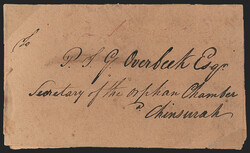 To
D. A. Overbeek Esqr
Secretary of the Orphan Chamber
Chinsurah